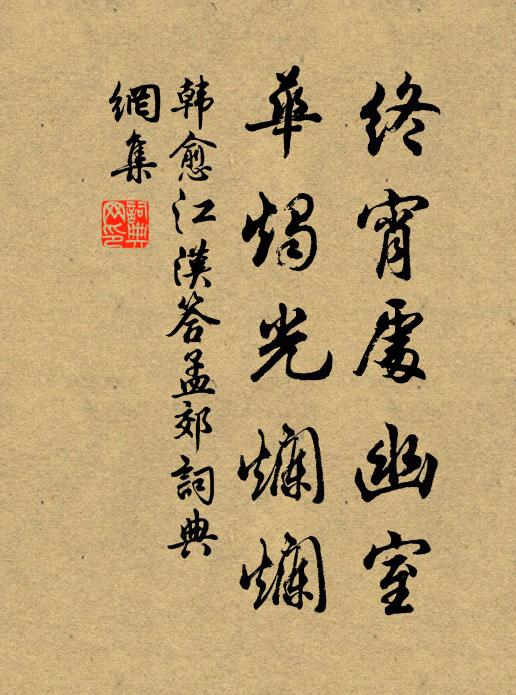 終宵處幽室
華燭光爛爛
韓愈江漢答孟郊詞典
網集
詞典
网印